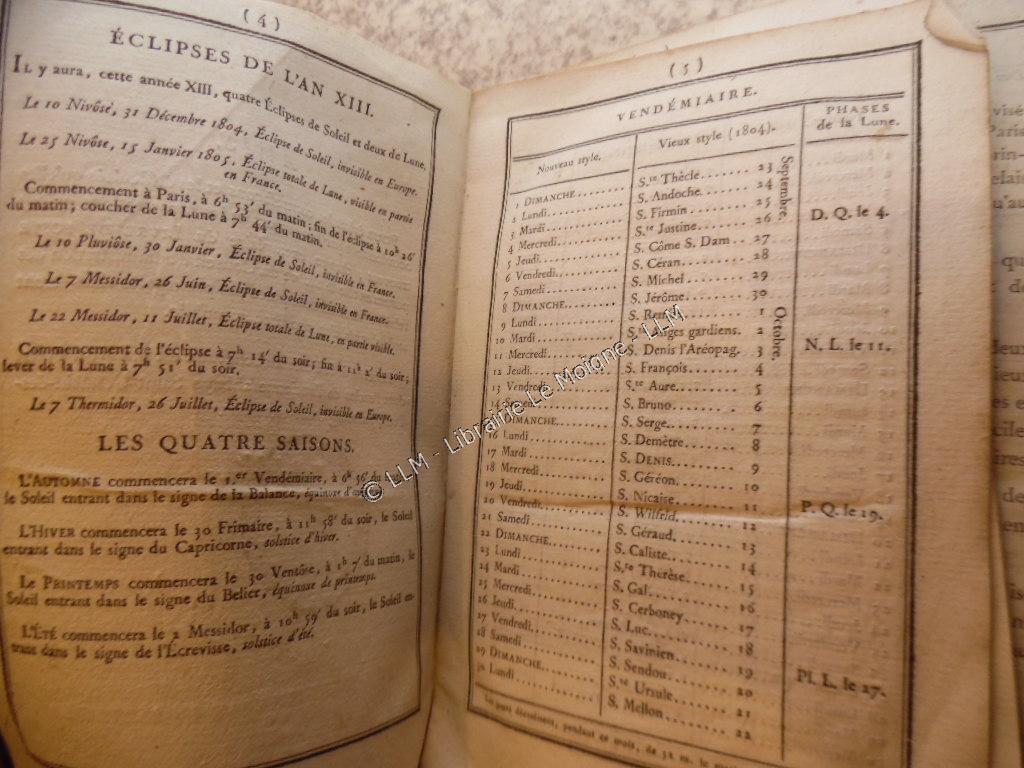 ( 4 )
ÉCLIPSES DE L'AN XIII.
IL y aura, cette année XIII, quatre Éclipses de Soleil et deux de Lune.
Le 10 Nivôse, 31 Décembre 1804, Éclipse de Soleil, invisible en Europe.
Le 25 Nivôse, 15 Janvier 1805, Éclipse totale de Lune, visible en partie
en France.
Commencement à Paris, à 6h 53' du matin; fin de l'éclipse à 10h 26'
du matin; coucher de la Lune à 7h 44' du matin.
Le 10 Pluviôse, 30 Janvier, Éclipse de Soleil, invisible en France.
Le 7 Messidor, 26 Juin, Éclipse de Soleil, invisible en France.
Le 22 Messidor, 11 Juillet, Éclipse totale de Lune, en partie visible.
Commencement de l'éclipse à 7h 14' du soir; fin à 11h 2' du soir;
lever de la Lune à 7h 51' du soir.
Le 7 Thermidor, 26 Juillet, Éclipse de Soleil, invisible en Europe.
LES QUATRE SAISONS.
L'AUTOMNE commencera le 1.er Vendémiaire, à 6h 56' du
le Soleil entrant dans le signe de la Balance, équinoxe
L'HIVER commencera le 30 Frimaire, à 11h 58' du soir, le Soleil
entrant dans le signe du Capricorne, solstice d'hiver.
Le PRINTEMPS commencera le 30 Ventôse, à 1h 7' du matin, le
Soleil entrant dans le signe du Belier, équinoxe de printemps.
L'ÉTÉ commencera le 2 Messidor, à 10h 59' du soir, le Soleil en-
trant dans le signe de l'Écrevisse, solstice d'été.
( 5 )
VENDÉMIAIRE.
Nouveau style. Vieux style (1804). PHASES
de la Lune.
1 DIMANCHE........ S.te Thècle....... 23 Septembre.
2 Lundi........... S. Andoche....... 24
3 Mardi........... S. Firmin........ 25
4 Mercredi........ S.te Justine...... 26 D. Q. le 4.
5 Jeudi........... S. Côme S. Dam... 27
6 Vendredi........ S. Céran......... 28
7 Samedi.......... S. Michel........ 29
8 DIMANCHE........ S. Jérôme........ 30
9 Lundi........... S. Remi 1 Octobre.
10 Mardi.......... S.ts Anges gardiens. 2
11 Mercredi....... S. Denis l'Aréopag. 3 N. L. le 11.
12 Jeudi.......... S. François...... 4
13 Vendredi S.te Aure........ 5
14 Samedi S. Bruno......... 6
DIMANCHE S. Serge......... 7
16 Lundi.......... S. Demètre....... 8
17 Mardi.......... S. DENIS......... 9
18 Mercredi....... S. Géréon........ 10
19 Jeudi.......... S. Nicaise....... 11 P. Q. le 19.
20 Vendredi....... S. Wilfrid....... 12
21 Samedi......... S. Géraud........ 13
22 DIMANCHE....... S. Caliste....... 14
23 Lundi.......... S.te Therèse...... 15
24 Mardi.......... S. Gal........... 16
25 Mercredi....... S. Cerboney...... 17
26 Jeudi.......... S. Luc........... 18
27 Vendredi....... S. Savinien...... 19 Pl. L. le 27.
28 Samedi......... S. Sendou........ 20
29 DIMANCHE....... S.te Ursule....... 21
30 Lundi.......... S. Mellon........ 22
Les jours décroissent, pendant ce mois, de 52 m. le
© LLM - Librairie Le Moigne - LLM